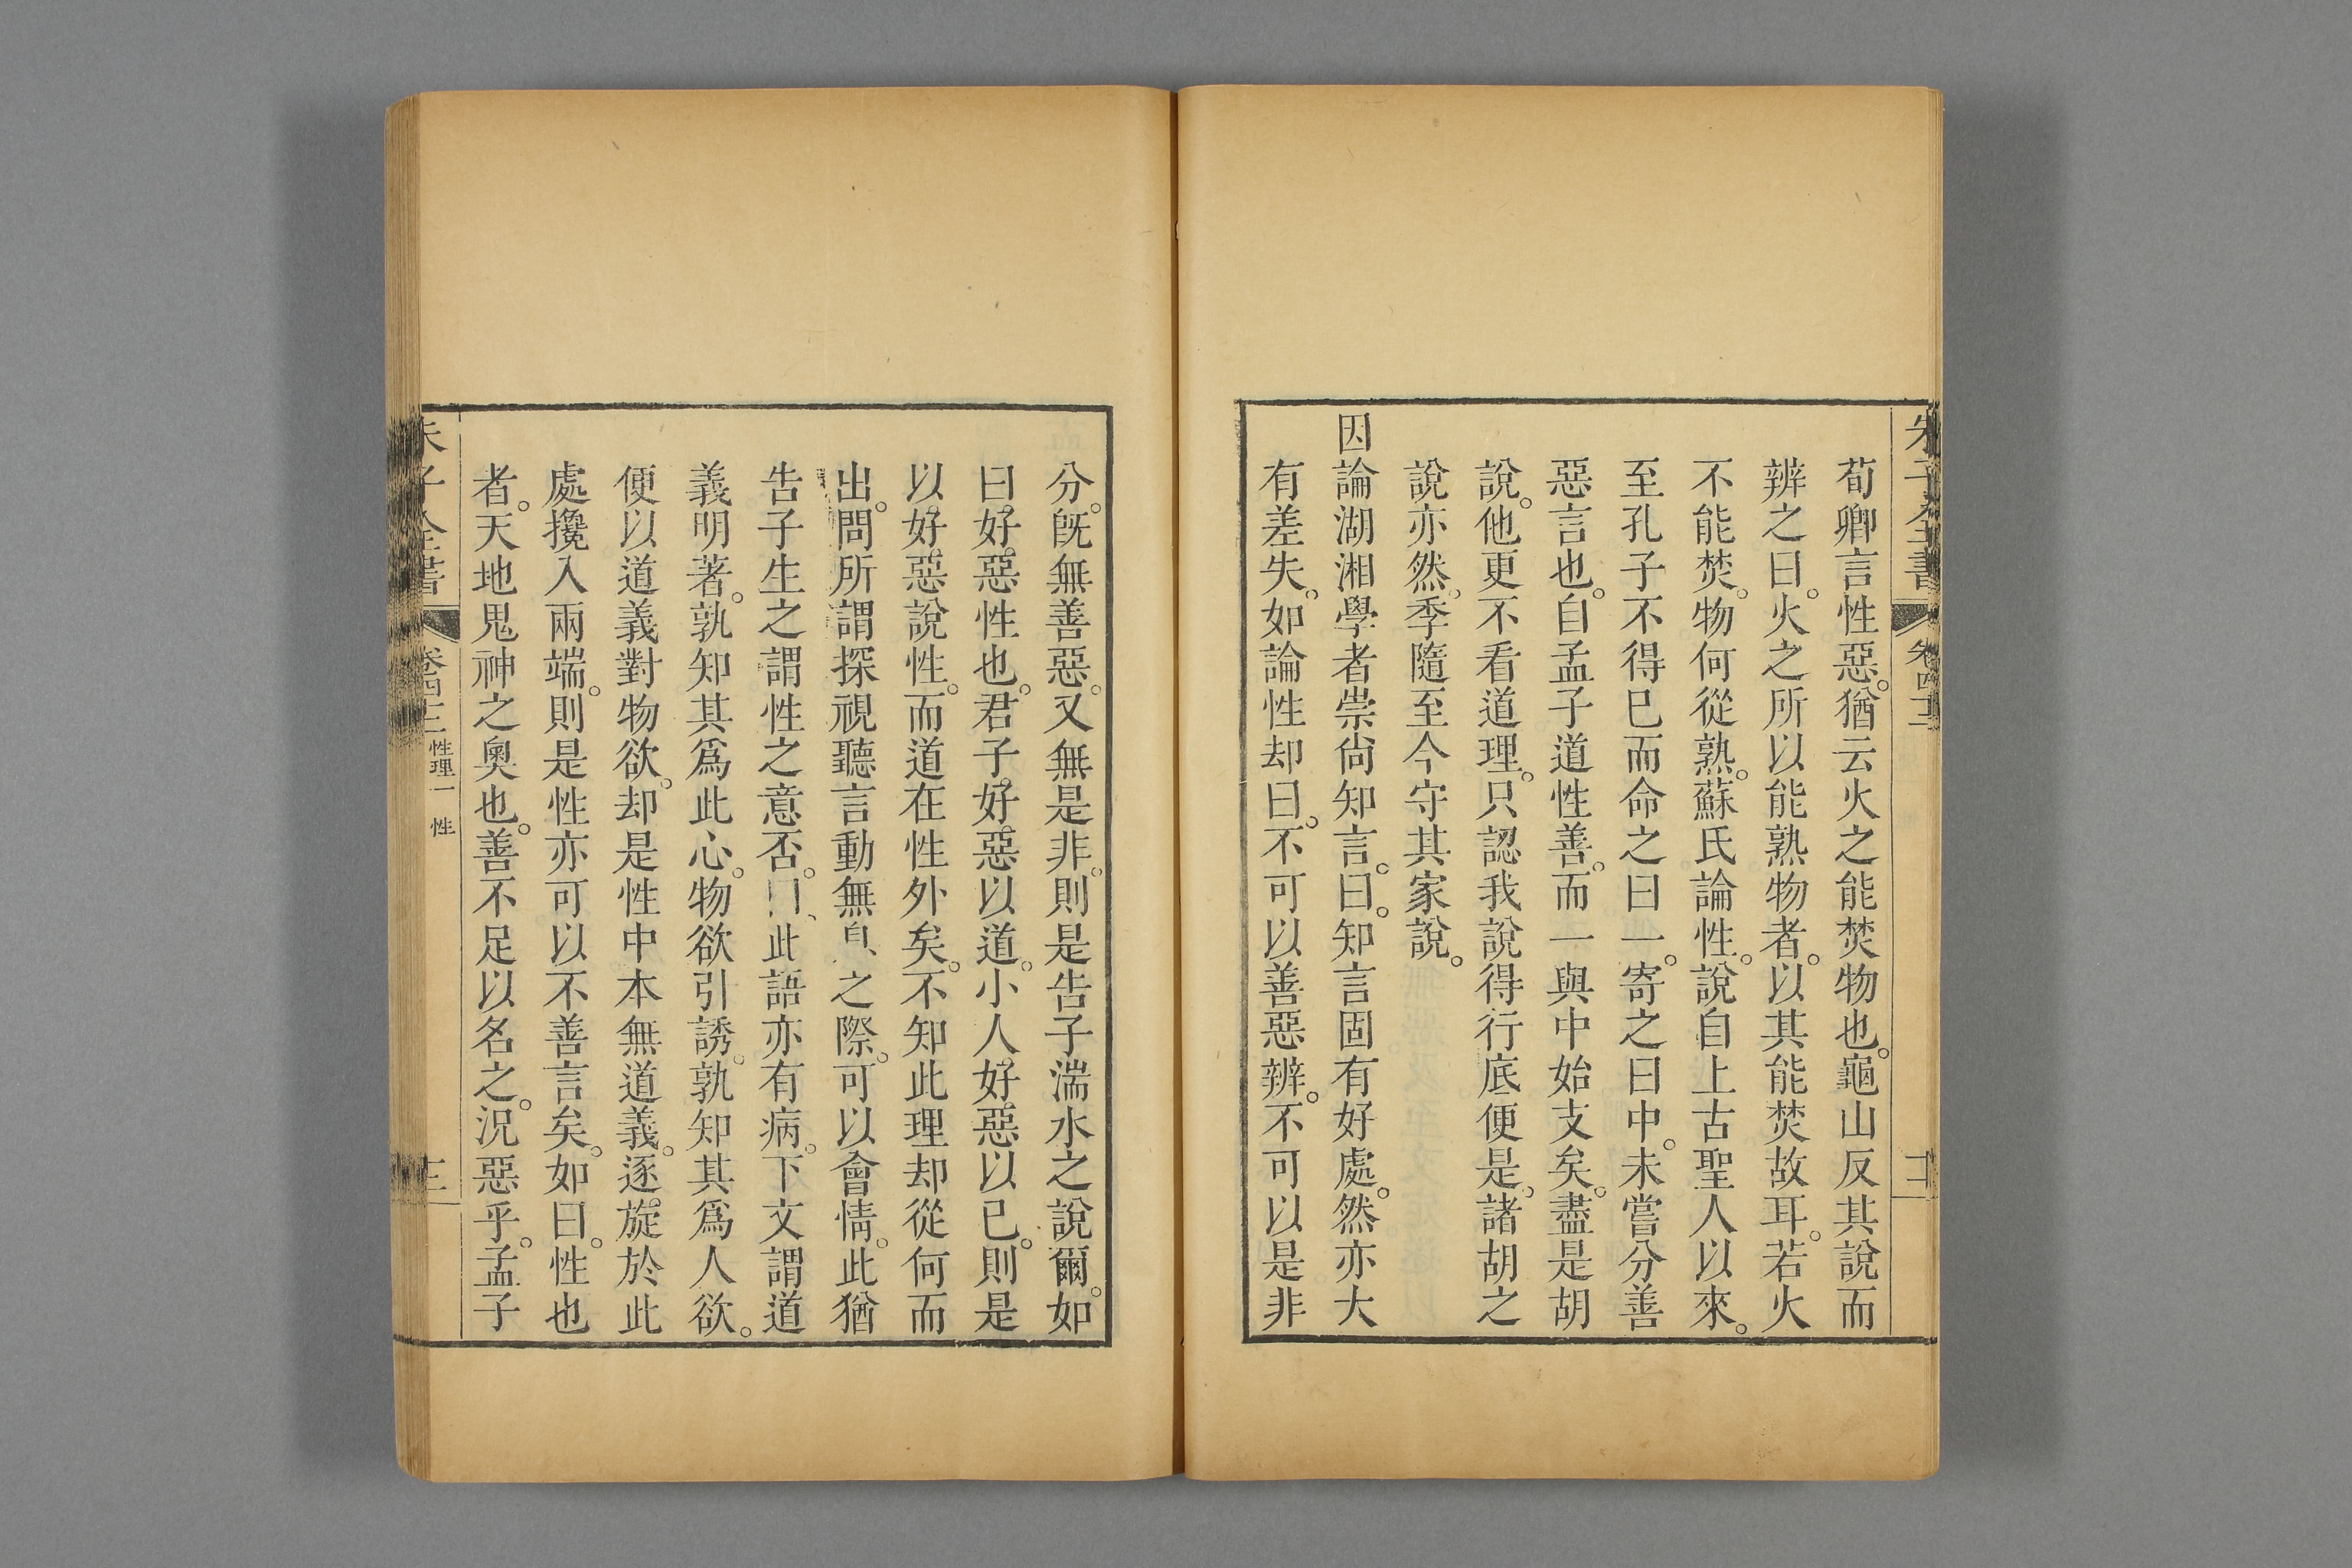 朱子全書
卷四十二
荀卿言性惡。猶云火之能焚物也。龜山反其說而
辨之曰。火之所以能熟物者。以其能焚故耳。若火
不能焚。物何從熟。蘇氏論性。說自上古聖人以來。
至孔子不得已而命之曰一。寄之曰中。未嘗分善
惡言也。自孟子道性善。而一與中始支矣。盡是胡
說。他更不看道理。只認我說得行底便是。諸胡之
說亦然。季隨至今守其家說。
因論湖湘學者崇尚知言。曰。知言固有好處。然亦大
有差失。如論性却曰。不可以善惡辨。不可以是非
分。旣無善惡。又無是非。則是告子湍水之說爾。如
曰。好惡性也。君子好惡以道。小人好惡以已。則是
以好惡說性。而道在性外矣。不知此理却從何而
出。問所謂探視聽言動無息之際。可以會情。此猶
告子生之謂性之意否。曰、此語亦有病。下文謂道
義明著。孰知其爲此心。物欲引誘。孰知其爲人欲。
便以道義對物欲。却是性中本無道義。逐旋於此
處攙入兩端。則是性亦可以不善言矣。如曰。性也
者。天地鬼神之奧也。善不足以名之。況惡乎。孟子
朱子全書
卷四十二
性理一 性